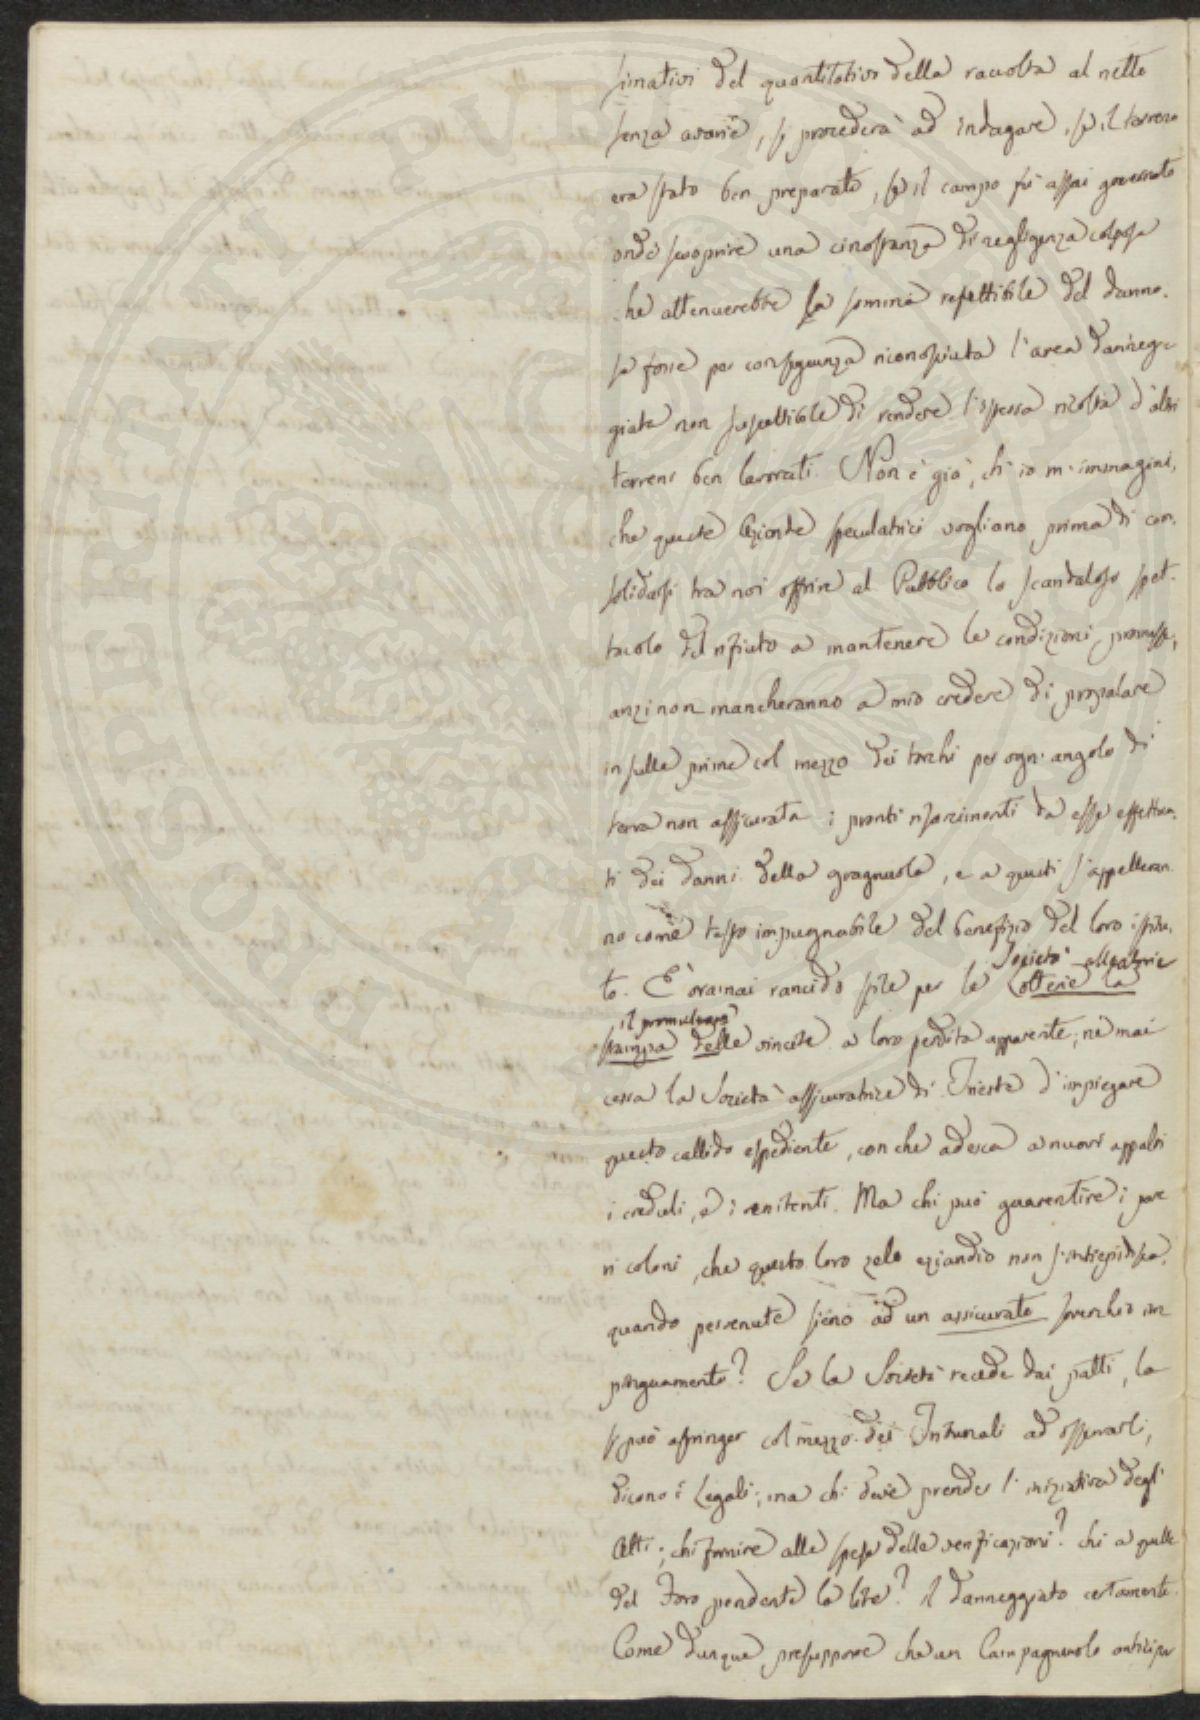 simativi del quantitativo della raccolta al netto
senza avarie, si procederà ad indagare, se il terreno
era stato ben preparato, se il campo fù assai governato
onde scoprire una circostanza di negligenza colposa
che attenuerebbe la somma refettibile del danno.
se forse per conseguenza riconosciuta l'area danneg-
giata non suscettibile di rendere l'istessa ricolta d'altri
terreni ben lavorati. Non è già, ch'io m'immagini,
che queste Aziende speculatrici vogliano prima di con-
solidarsi tra noi offrire al Pubblico lo scandaloso spet-
tacolo del rifiuto a mantenere le condizioni promesse,
anzi non mancheranno a mio credere di propalare
in sulle prime col mezzo dei torchi per ogni angolo di
terra non assicurata i pronti risarcimenti da esse effettua-
ti dei danni della gragnuola, e a questi s'appelleran-
no come testo impugnabile del benefizio del loro istitu-
to. È oramai rancido stile per le Lotterie la
Società alleatorie
il promulgare
stampa delle vincite a loro perdita apparente; nè mai
cessa la Società assicuratrice di Trieste d'impiegare
questo callido espediente, con che adesca a nuovi appalti
i creduli, e i renitenti. Ma chi può guarentire i pove-
ri coloni, che questo loro zelo eziandio non s'intiepidisca,
quando pervenute sieno ad un assicurato soverchio im-
pinguamento? Se la Società recede dai patti, la
si può astringer col mezzo dei Tribunali ad osservarli,
dicono i Legali; ma chi deve prender l'iniziativa degli
Atti; chi fornire alle spese delle verificazioni? chi a quelle
del Foro pendente la lite? il danneggiato certamente.
Come dunque presupporre che un Campagnuolo anticipi
PROSPERITATI PUBLICAE